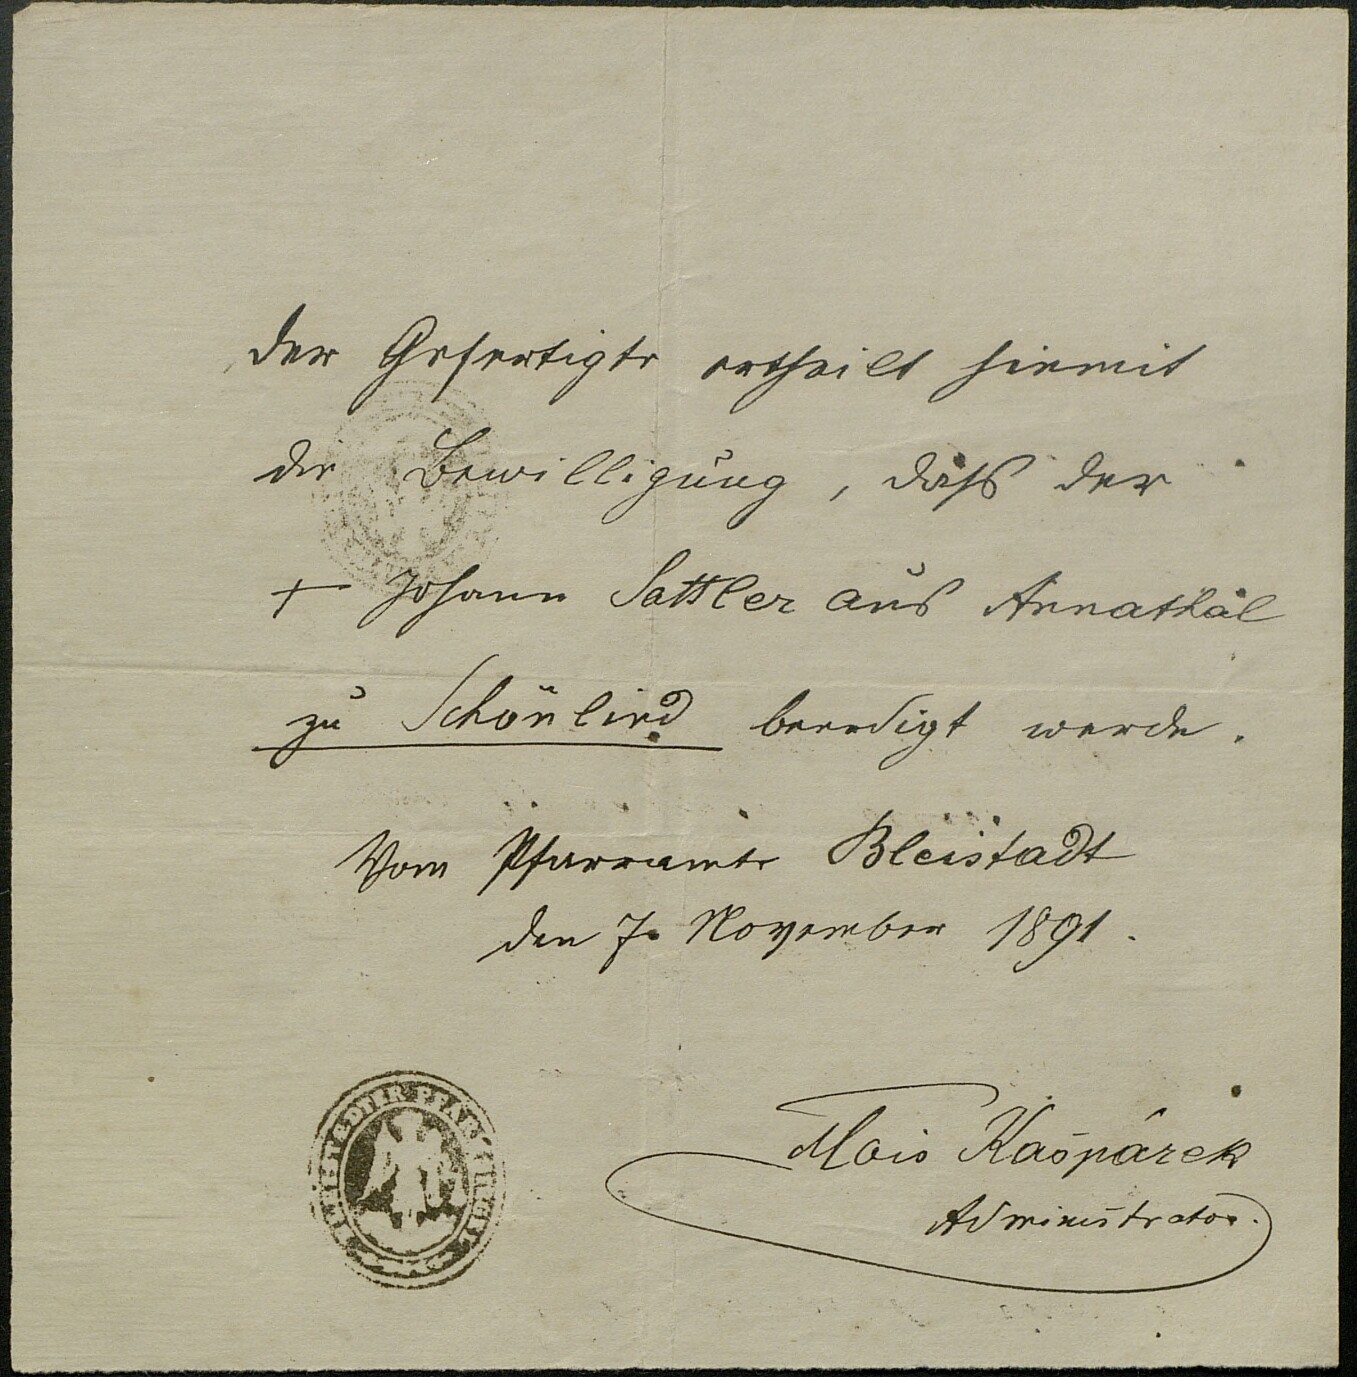 Der Gefertigte ertheilt hiemit
die Bewilligung, daß der
+ Johann Sattler aus Annathal
zu Schönlind beerdigt werde.
Vom Pfarramte Bleistadt
den 7. November 1891.
Alois Kašpárek
Administrator.